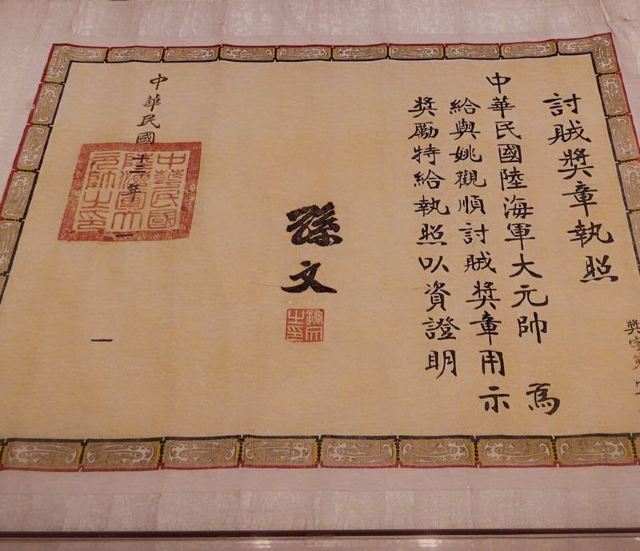 討賊獎章執照
中華民國陸海軍大元帥 為
給與姚觀順討賊獎章用示
獎勵特給執照以資證明
孫文
孫文之印
中華民國 年
中華民國陸海軍大元帥之印
一